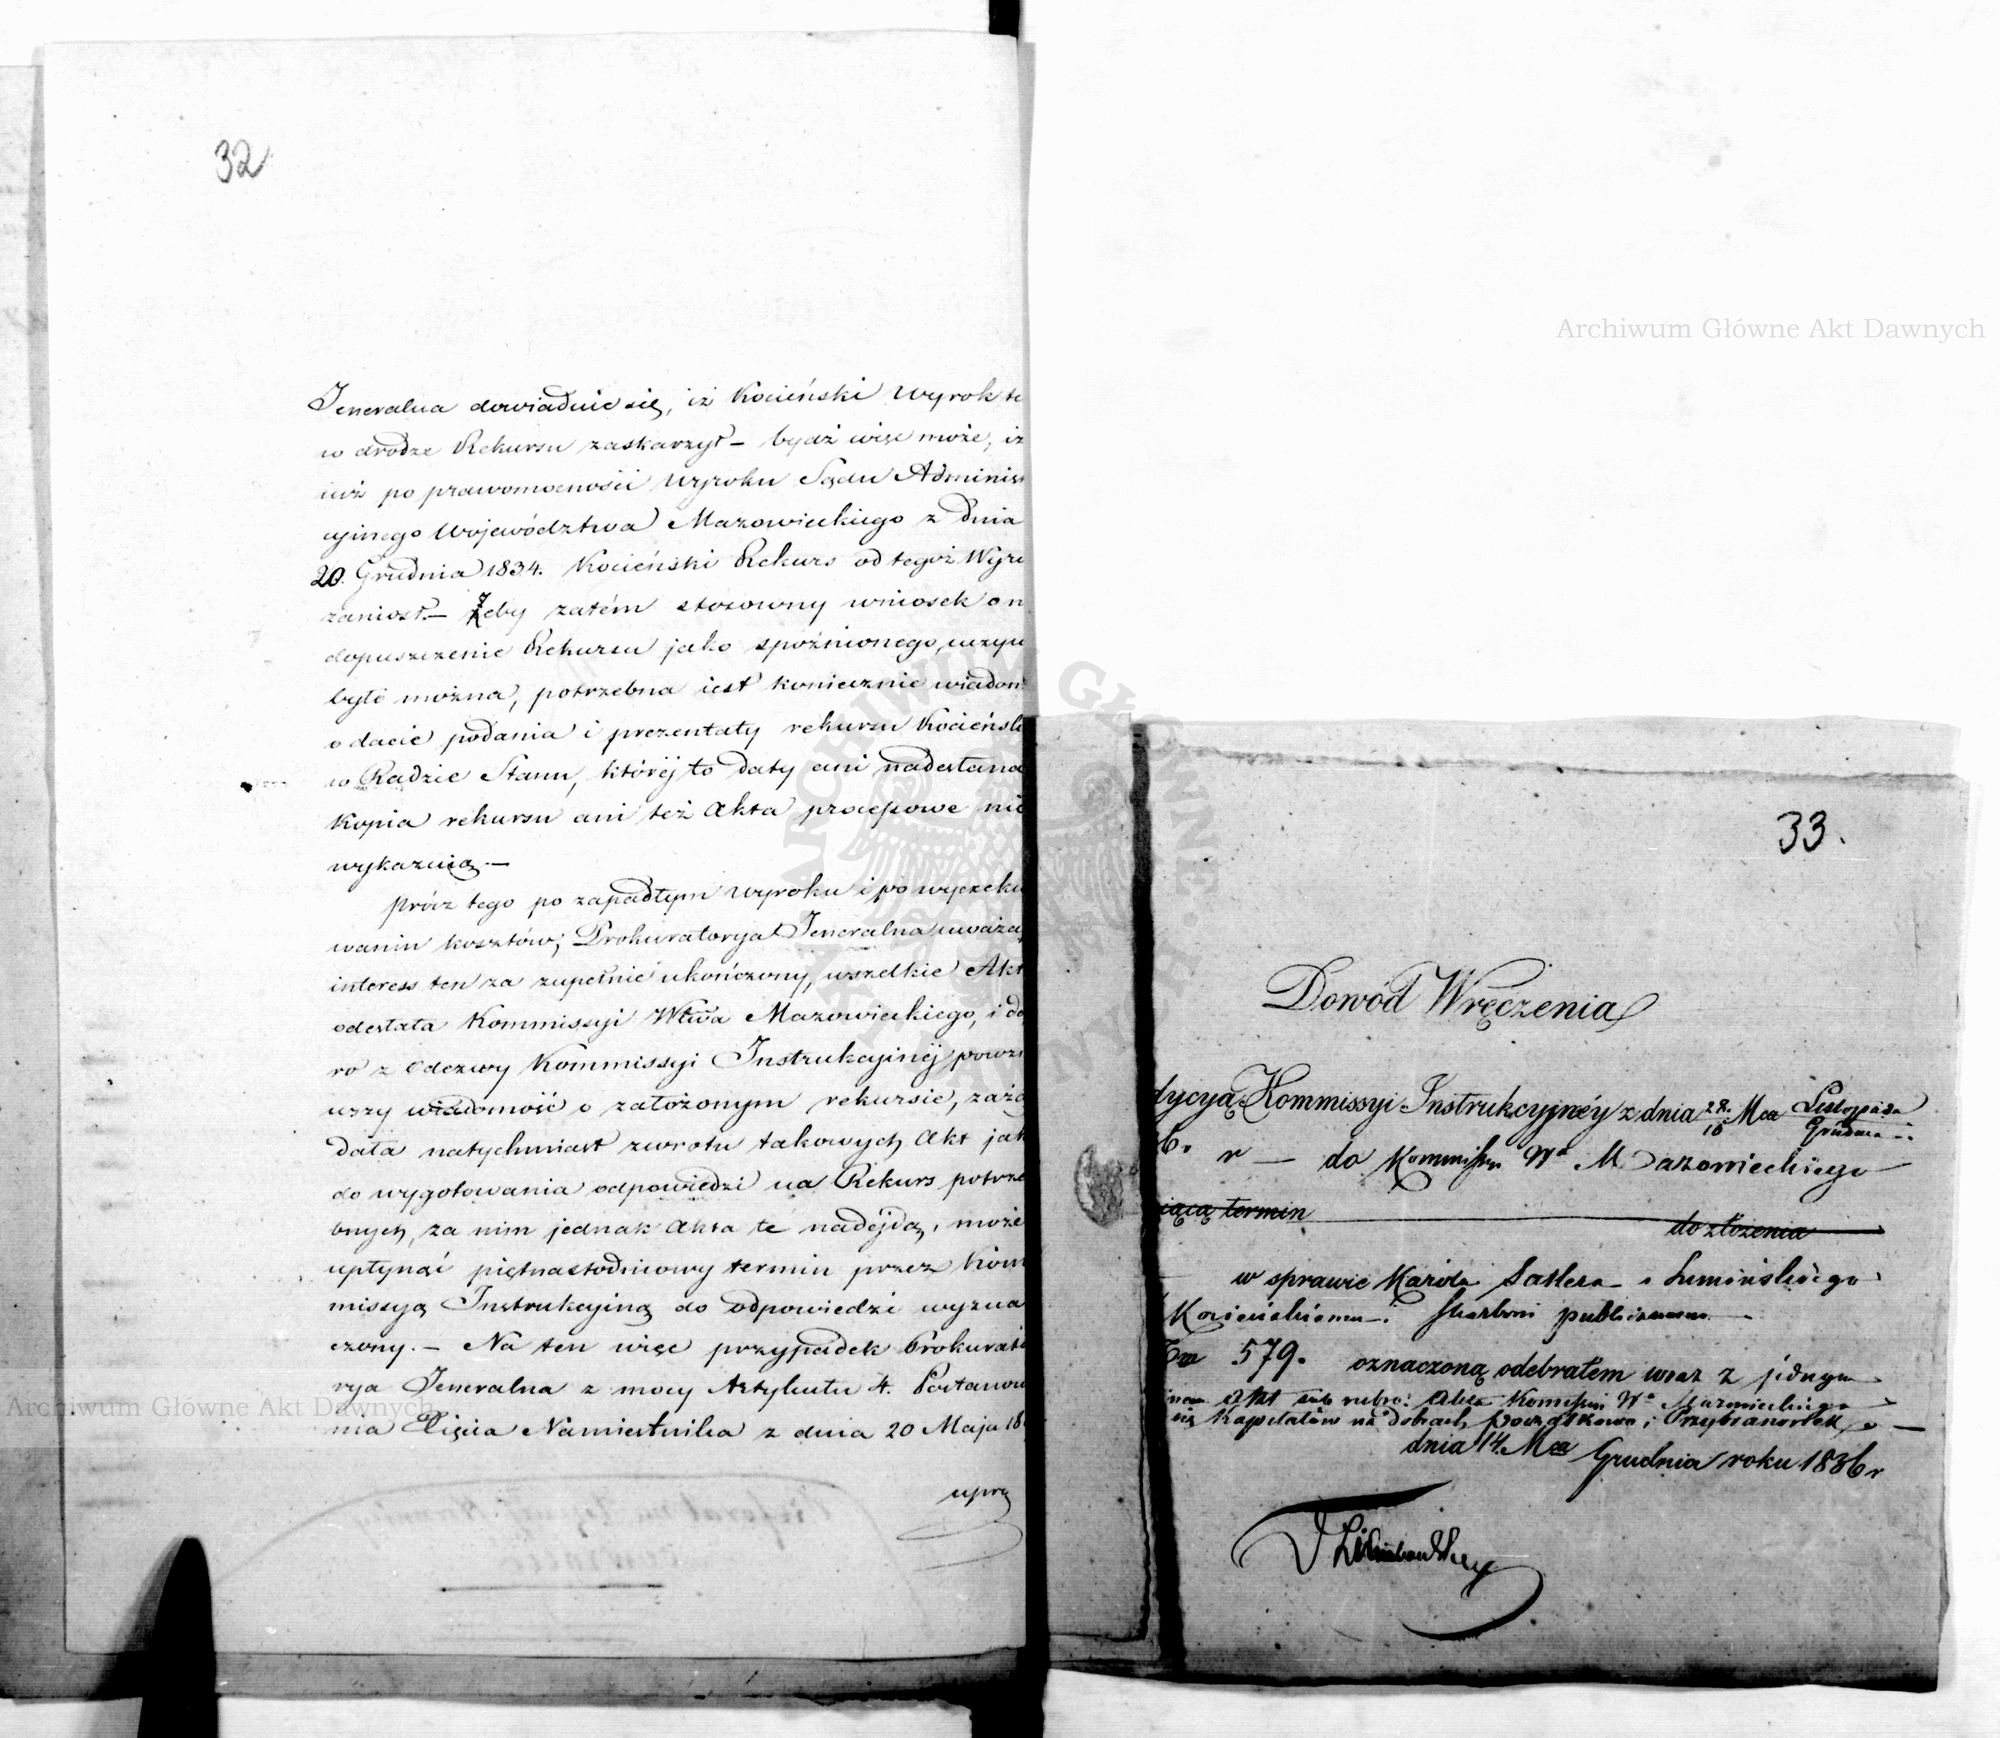 32
Jeneralna dowiaduie się, iż Kocieński Wyrok te
w drodze Rekursu zaskarzył – bydź więc może, iż
iuż po prawomocności Wyroku Sądu Adminis
cyjnego Województwa Mazowieckiego z dnia
20. Grudnia 1834. Kocieński Rekurs od tegoż Wyro
zaniosł. – Żeby zatém stosowny wniosek o n
dopuszczenie Rekursu jako spoźnionego, uczyn
było można, potrzebna iest koniecznie wiadom
o dacie podania i prezentaty rekursu Kocieńsk
w Radzie Stanu, któréj to daty ani nadesłana
Kopia rekursu ani też Akta processowe nie
wykazuią. –
Prócz tego po zapadłym Wyroku i po wyexeku
waniu kosztów; Prokuratorya Jeneralna uważa
interess ten za zupełnie ukończony, wszelkie Akt
odesłała Kommissyi Wtwa Mazowieckiego, i do
ro z Odezwy Kommissyi Instrukcyinéj powzi
wszy wiadomość o założonym rekursie, zażą
dała natychmiast zwrotu takowych Akt jak
do wygotowania odpowiedzi na Rekurs potrze
bnych, za nim jednak Akta te nadéjdą, może
upłynąć piętnastodniowy termin przez Kom
missyą Instrukcyiną do odpowiedzi wyzna
czony. – Na ten więc przypadek Prokurato
rya Jeneralna z mocy Artykułu 4. Postanow
nia Xięcia Namiestnika z dnia 20 Maja 18
uprą
33.
Dowód Wręczenia
dycyą Kommissyi Instrukcyjnéy z dnia 28./10 Mca Listopada/Grudnia
6. r – do Kommissyi Wa Mazowieckiego
iącą termin do złożenia
w sprawie Karola Satlera i Lumińskiego
Kocieńskiemu i Skarbowi publicznemu
579. oznaczoną odebrałem wraz z jednym
Akt sub rubro: Akta Kommissyi Wa Mazowieckiego
Kapitałów na dobrach Początkowo i Przybianowek
dnia 14. Mca Grudnia roku 1836 r